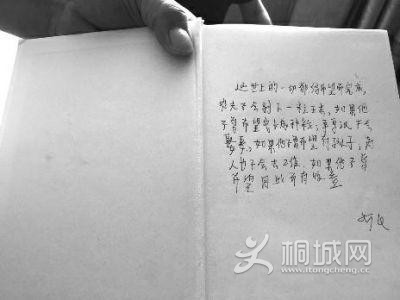 这世上的一切都借希望而完成,
农夫不会剥下一粒玉米,如果他
不曾希望它长成种粒;单身汉不会
娶妻,如果他不曾希望有孩子;商
人也不会去工作,如果他不曾
希望因此而有收益.
桐城网
www.itongcheng.com